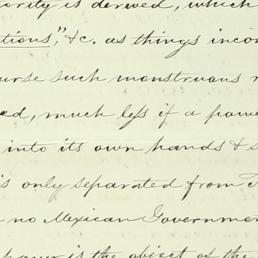 ority is derived, which
tions," &c. as things incon
urse such monstruous r
ed, much less if a powe
into its own hands & s
is only separated from T
no Mexican Governmen
power is the object of the